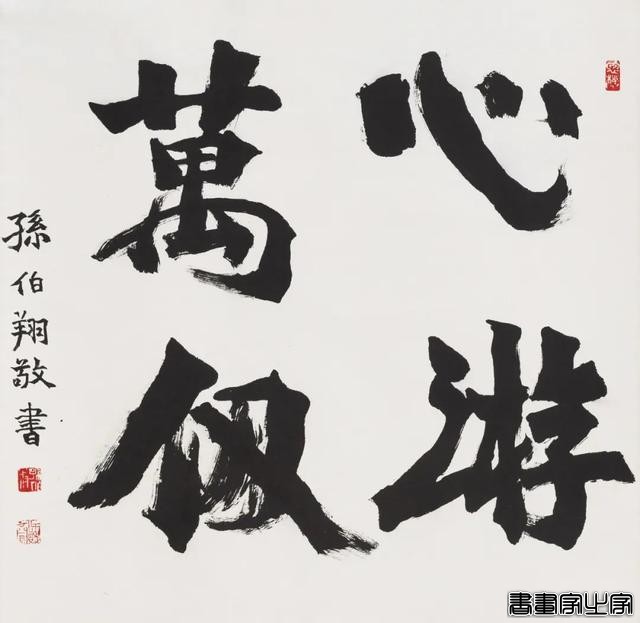 心游
萬仞
孫伯翔敬書
書畫家之家